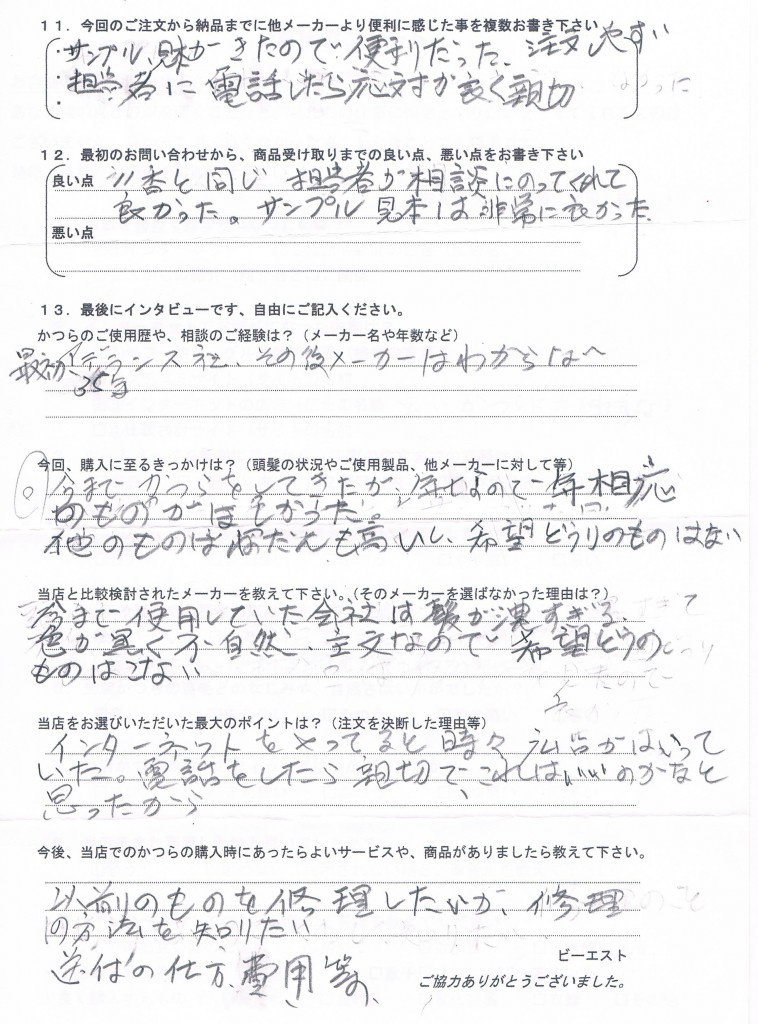 １１．今回のご注文から納品までに他メーカーより便利に感じた事を複数お書き下さい
・サンプル、見本がきたので便利だった、注文しやすい
・担当者に電話したら応対が良く親切
・
１２．最初のお問い合わせから、商品受け取りまでの良い点、悪い点をお書き下さい
良い点 11番と同じ、担当者が相談にのってくれて
良かった。サンプル見本は非常に良かった、
悪い点
１３．最後にインタビューです、自由にご記入ください。
かつらのご使用歴や、相談のご経験は？（メーカー名や年数など）
最初、アデランス社、その後メーカーはわからな〜
35年
今回、購入に至るきっかけは？（頭髪の状況やご使用製品、他メーカーに対して等）
今までかつらをしてきたが、年なので年相応
のものがほしかった。
他のものはねだんも高いし、希望どうりのものはない
当店と比較検討されたメーカーを教えて下さい。（そのメーカーを選ばなかった理由は？）
今まで使用していた会社は髪が濃すぎる、
色が黒く不自然、注文なので希望どうりの
ものはこない
当店をお選びいただいた最大のポイントは？（注文を決断した理由等）
インターネットをやってると時々広告がはいって
いた。電話をしたら親切で、これはいいのかなと
思ったから
今後、当店でのかつらの購入時にあったらよいサービスや、商品がありましたら教えて下さい。
以前のものを修理したいが、修理
の方法を知りたい
送付の仕方、費用等、
ビーエスト
ご協力ありがとうございました。